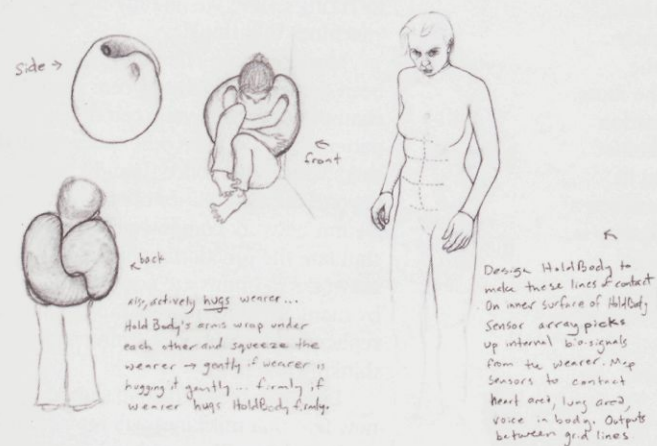 Side →
front
back
also, actively hugs wearer...
HoldBody's arms wrap under
each other and squeeze the
wearer → gently if wearer is
hugging it gently... firmly if
wearer hugs HoldBody firmly.
Design HoldBody to
make these lines of contact
On inner surface of HoldBody
Sensor array picks
up internal bio-signals
from the wearer. Map
Sensors to contact
heart area, lung area,
voice in body. Outputs
between grid lines.